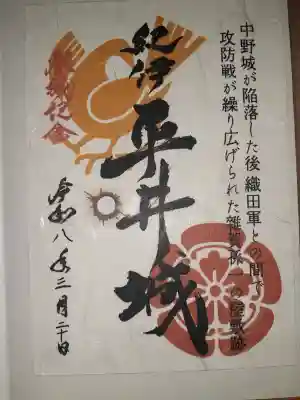 中野城が陥落した後織田軍との間で
攻防戦が繰り広げられた雑賀孫一の屋敷跡
紀伊
平井城
登城記念
令和八年三月二十日